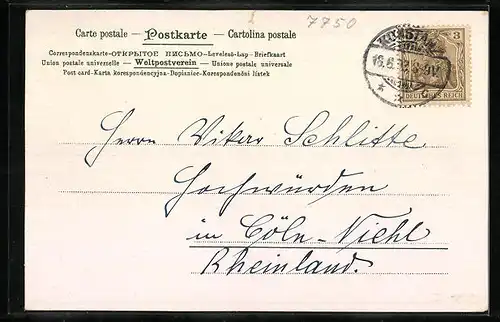 7750
Carte postale – Postkarte – Cartolina postale
Correspondenzkarte–ОТКРЫТОЕ ПИСЬМО–Levelező-Lap–Briefkaart
Union postale universelle – Weltpostverein – Unione postale universale
Post card–Karta korespondencyjna–Dopisnice–Korespondenční lístek
KONSTANZ
3
DEUTSCHES REICH
Herrn Vikar Schlitte
Hochwürden
in Cöln-Niehl
Rheinland.